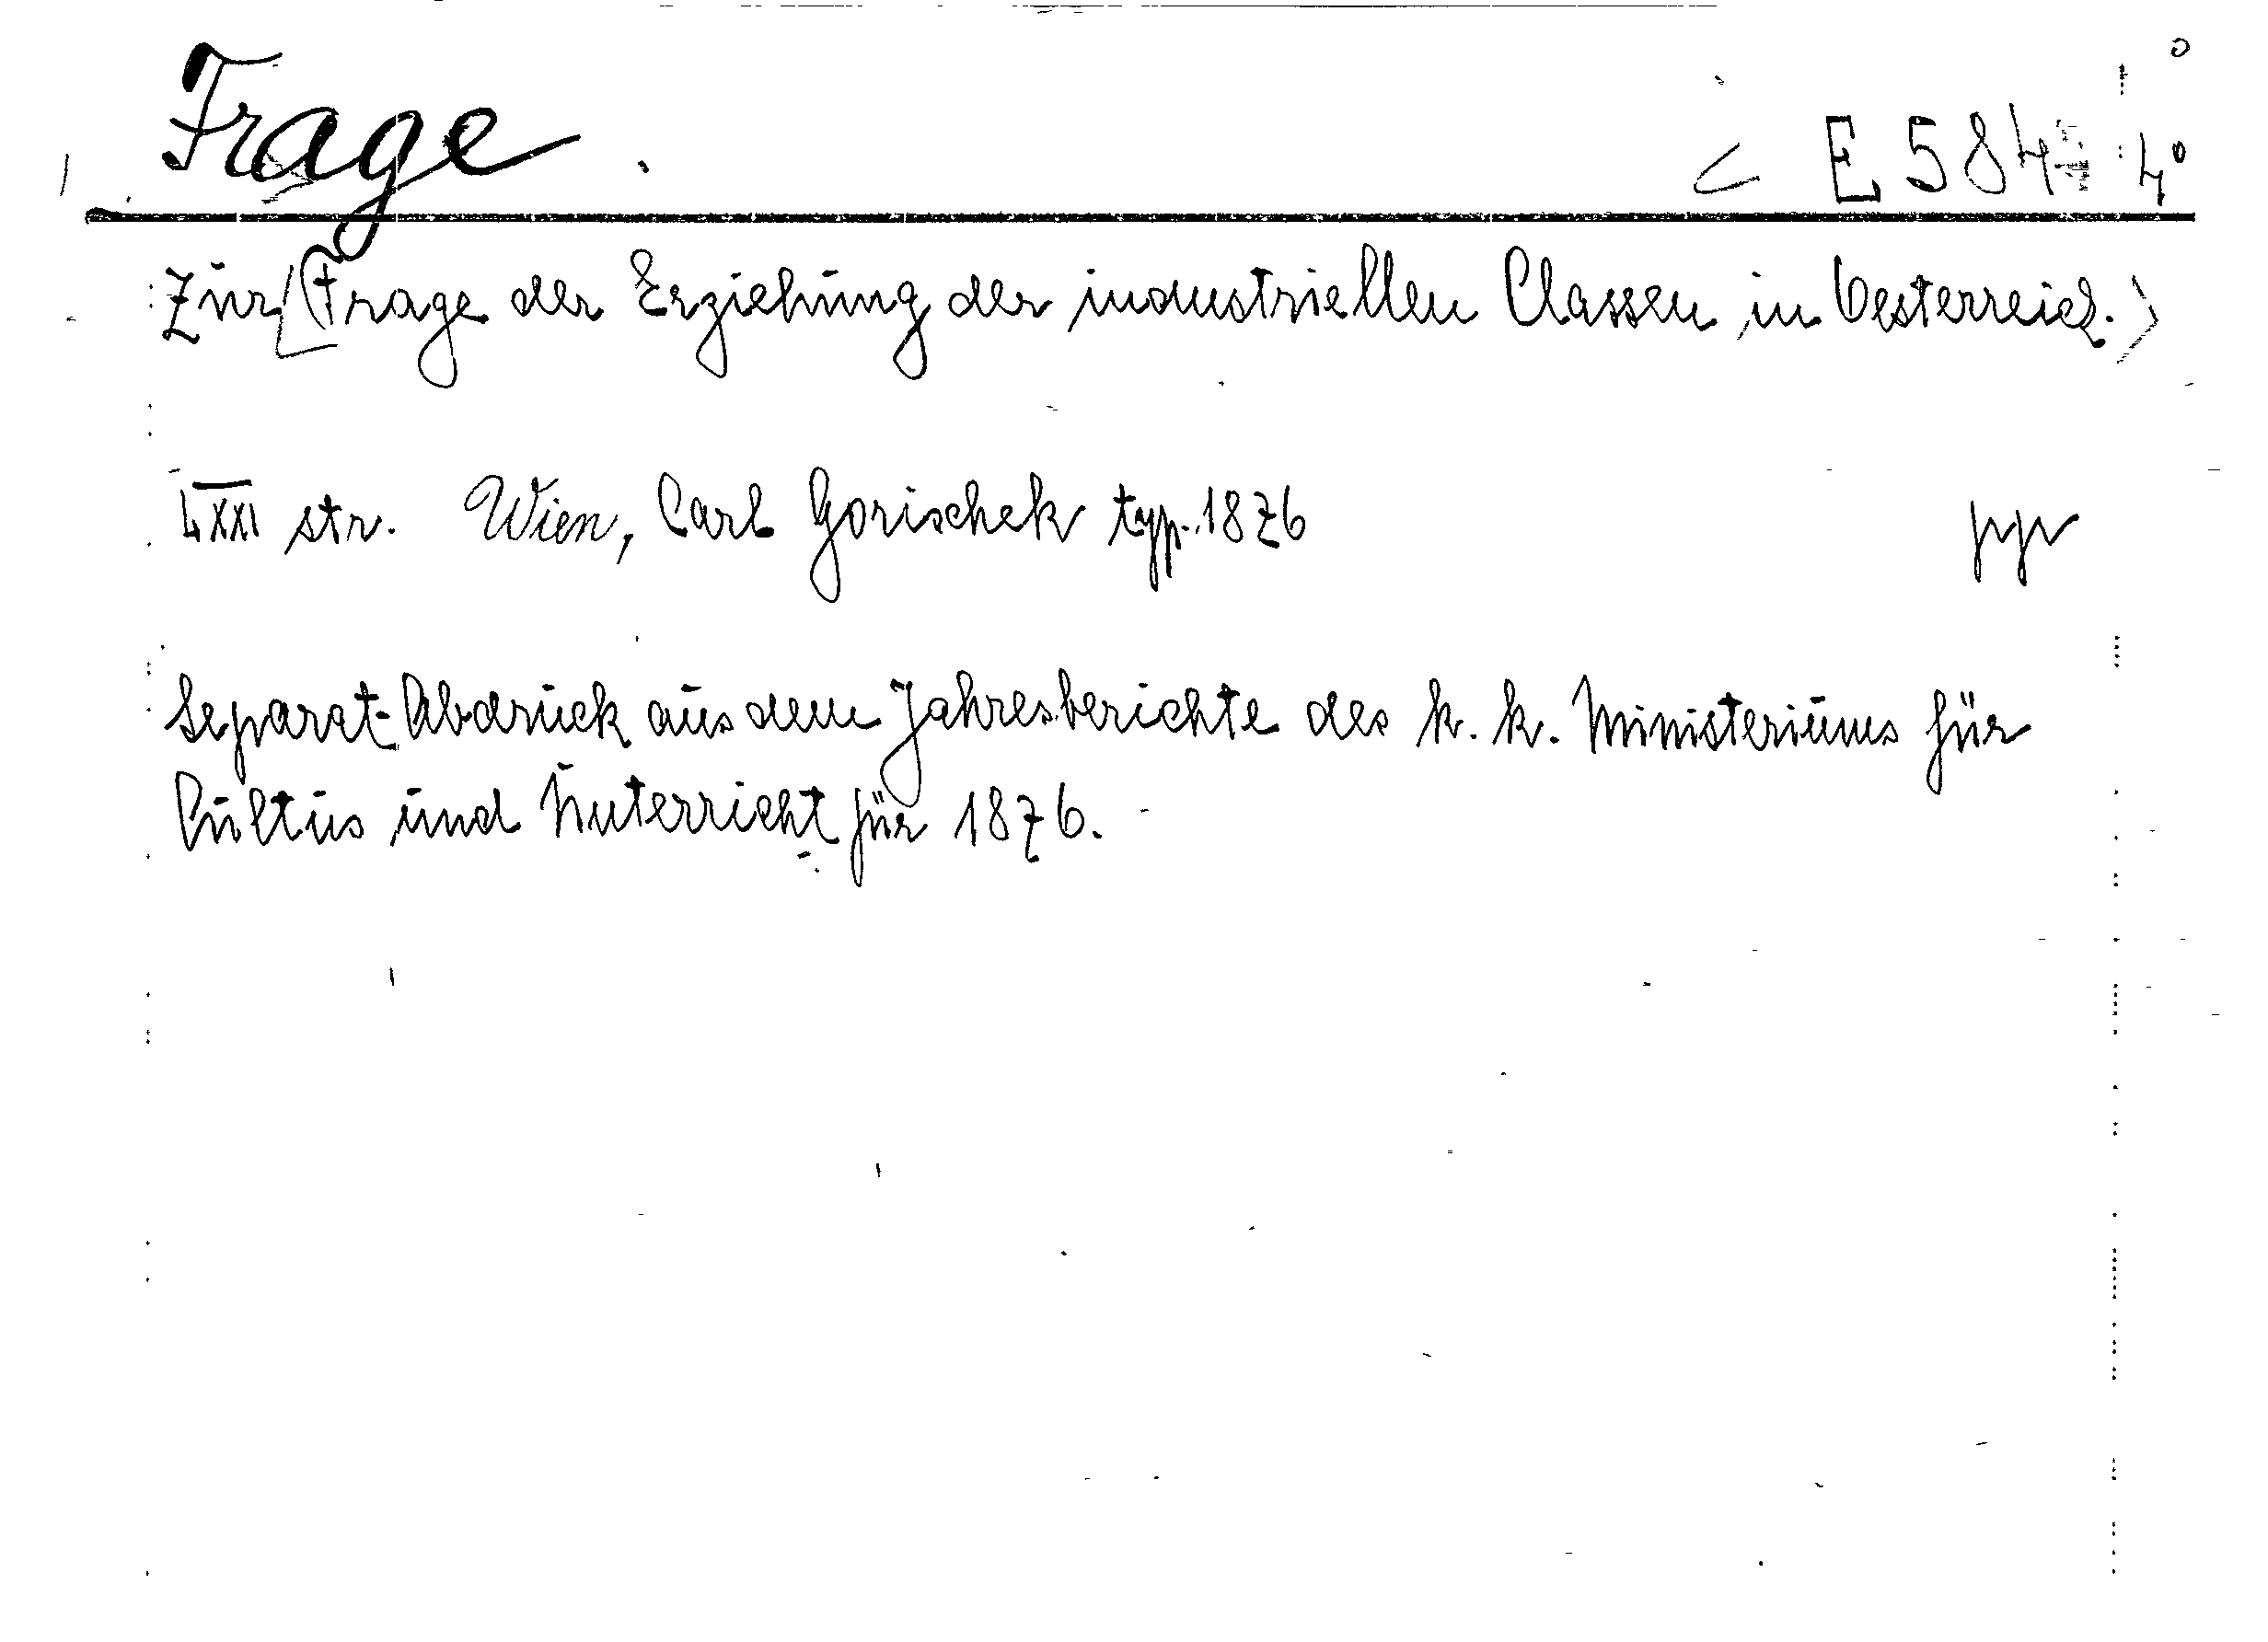 Frage
E 584 4°
Zur Frage der Erziehung der industriellen Classen in Oesterreich.
LXXI str. Wien, Carl Gorischek typ. 1876
Separat-Abdruck aus dem Jahresberichte des k. k. Ministeriums für
Cultus und Unterricht für 1876.